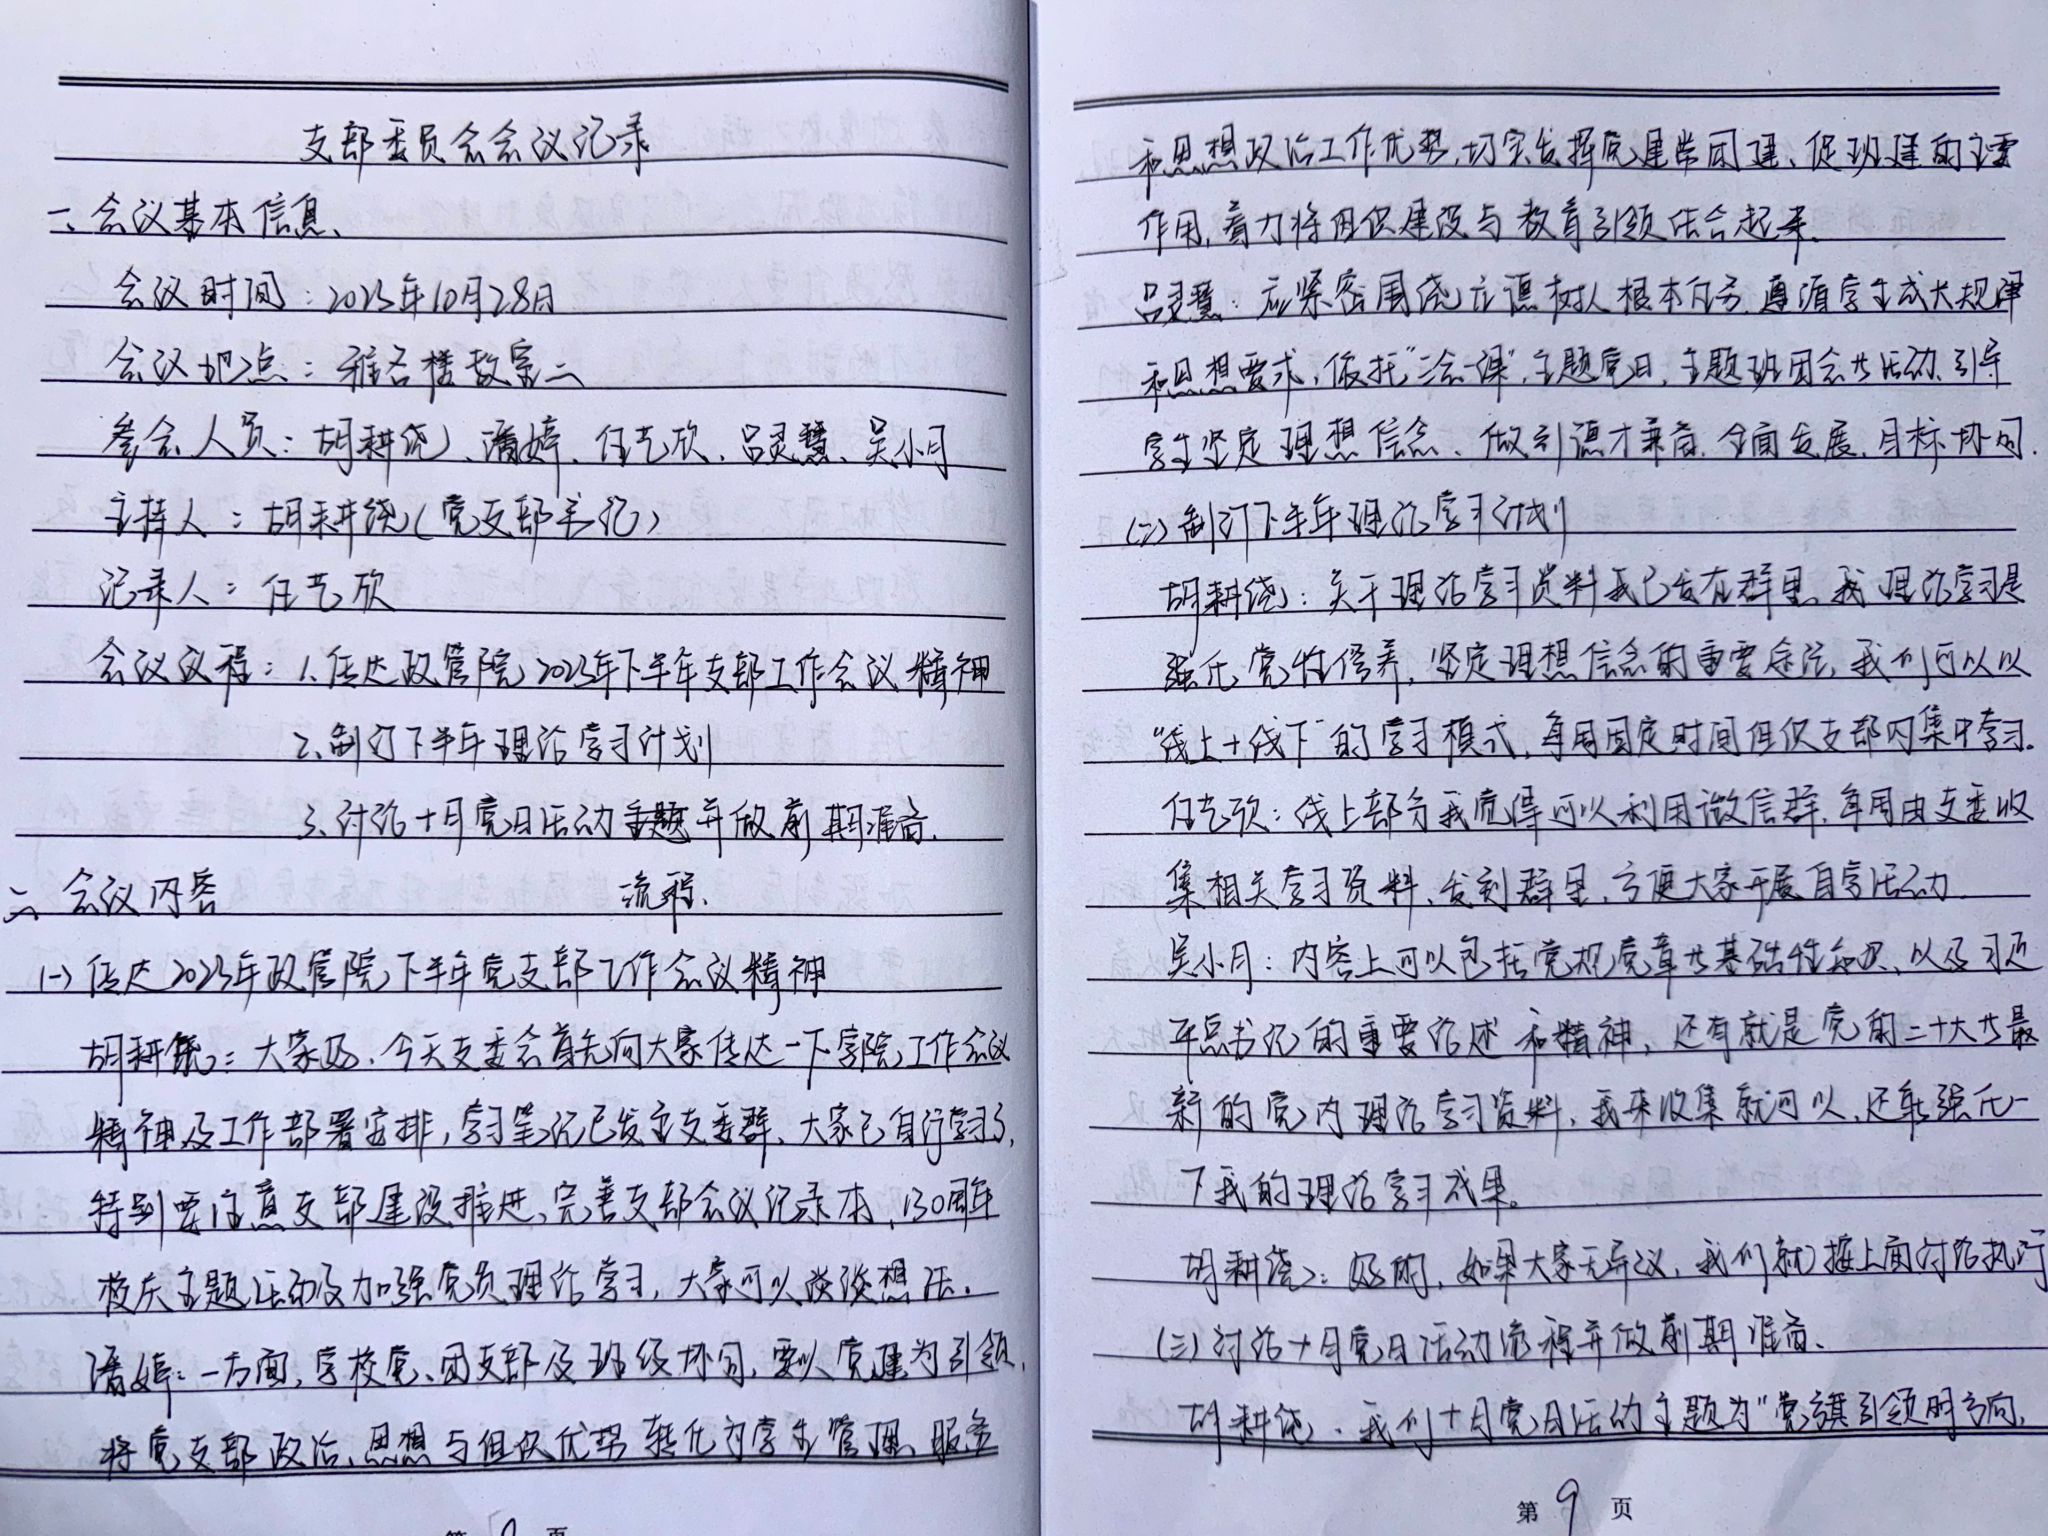 支部委员会会议记录
一、会议基本信息、
会议时间：2023年10月28日
会议地点：雅各楼教室二
参会人员：胡耕绕、潘婷、任艺欣、吕灵慧、吴小月
主持人：胡耕绕（党支部书记）
记录人：任艺欣
会议议程：1.传达政管院2023年下半年支部工作会议精神
2.制订下半年理论学习计划
3.讨论十月党日活动主题并做前期准备.
二、会议内容 流程、
(一)传达2023年政管院下半年党支部工作会议精神
胡耕绕：大家好.今天支委会首先向大家传达一下学院工作会议
精神及工作部署安排，学习笔记已发至支委群、大家已自行学习了，
特别要注意支部建设推进、完善支部会议记录本、130周年
校庆主题活动及加强党员理论学习，大家可以谈谈想法.
潘婷：一方面，学校党、团支部及班级协同，要以党建为引领，
将党支部政治、思想与组织优势转化为学生管理、服务
和思想政治工作优势，切实发挥党建带团建、促班建的主要
作用，着力将组织建设与教育引领结合起来.
吕灵慧：应紧密围绕立德树人根本任务.遵循学生成长规律
和思想要求，依托“三会一课”，主题党日，主题班团会共活动、引导
学生坚定理想信念、做到德才兼备、全面发展、目标协同.
(二)制订下半年理论学习计划
胡耕绕：关于理论学习资料我已发在群里.我理论学习是
强化党性修养，坚定理想信念的重要途径，我们可以以
“线上+线下”的学习模式，每周固定时间组织支部内集中学习。
任艺欣：线上部分我觉得可以利用微信群，每周由支委收
集相关学习资料、发到群里，方便大家开展自学活动.
吴小月：内容上可以包括党规党章共基础性知识、以及习近
平总书记的重要论述和精神，还有就是党的二十大共最
新的党内理论学习资料，我来收集就可以，还能强化一
下我的理论学习成果。
胡耕绕：好的，如果大家无异议，我们就按上面讨论执行
(三)讨论十月党日活动流程并做前期准备.
胡耕绕：我们十月党日活的主题为“党旗引领明方向，
第9页
第9页